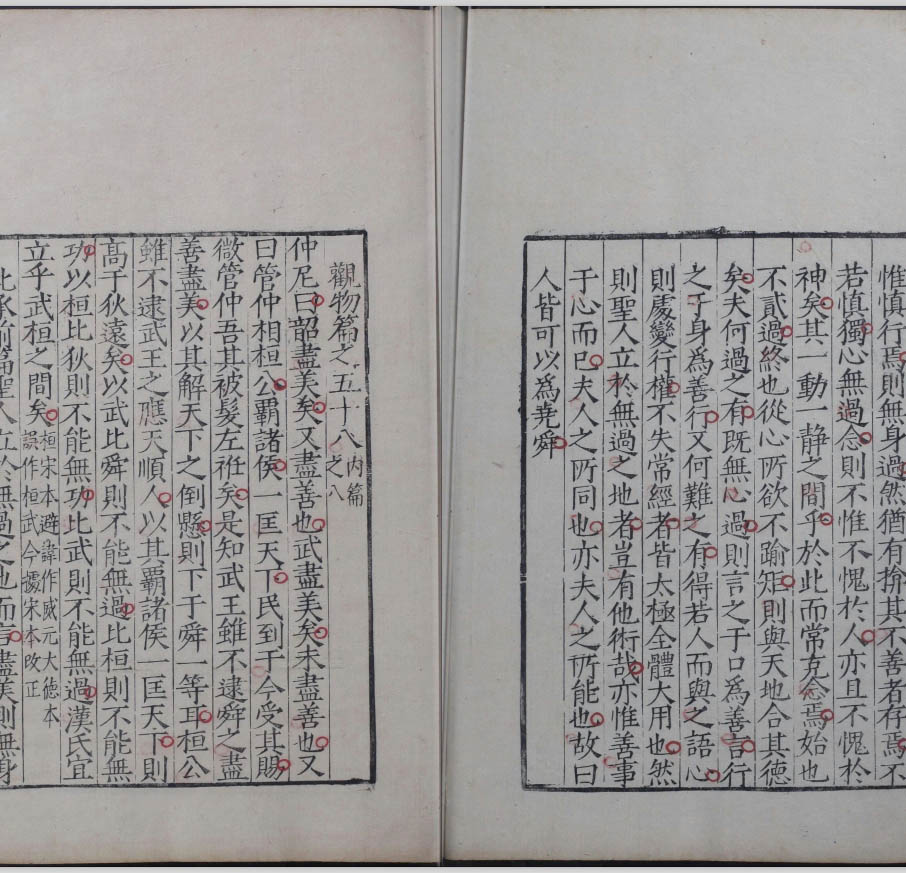 惟慎行焉則無身過然猶有揜其不善者存焉不
若慎獨心無過念則不惟不愧於人亦且不愧於
神矣其一動一静之間乎於此而常克念焉始也
不貳過終也從心所欲不踰矩則與天地合其德
矣夫何過之有既無心過則言之于口爲善言行
之于身爲善行又何難之有得若人而與之語心
則處變行權不失常經者皆太極全體大用也然
則聖人立於無過之地者豈有他術哉亦惟善事
于心而已夫人之所同也亦夫人之所能也故曰
人皆可以爲堯舜
觀物篇之五十八内篇之八
仲尼曰韶盡美矣又盡善也武盡美矣未盡善也又
曰管仲相桓公霸諸侯一匡天下民到于今受其賜
微管仲吾其被髮左衽矣是知武王雖不逮舜之盡
善盡美以其解天下之倒懸則下于舜一等耳桓公
雖不逮武王之應天順人以其霸諸侯一匡天下則
高于狄遠矣以武比舜則不能無過比桓則不能無
功以桓比狄則不能無功比武則不能無過漢氏宜
立乎武桓之間矣桓宋本避諱作威元大德本誤作桓武今據宋本改正
此承前篇聖人立於無過之地而言盡美則無身